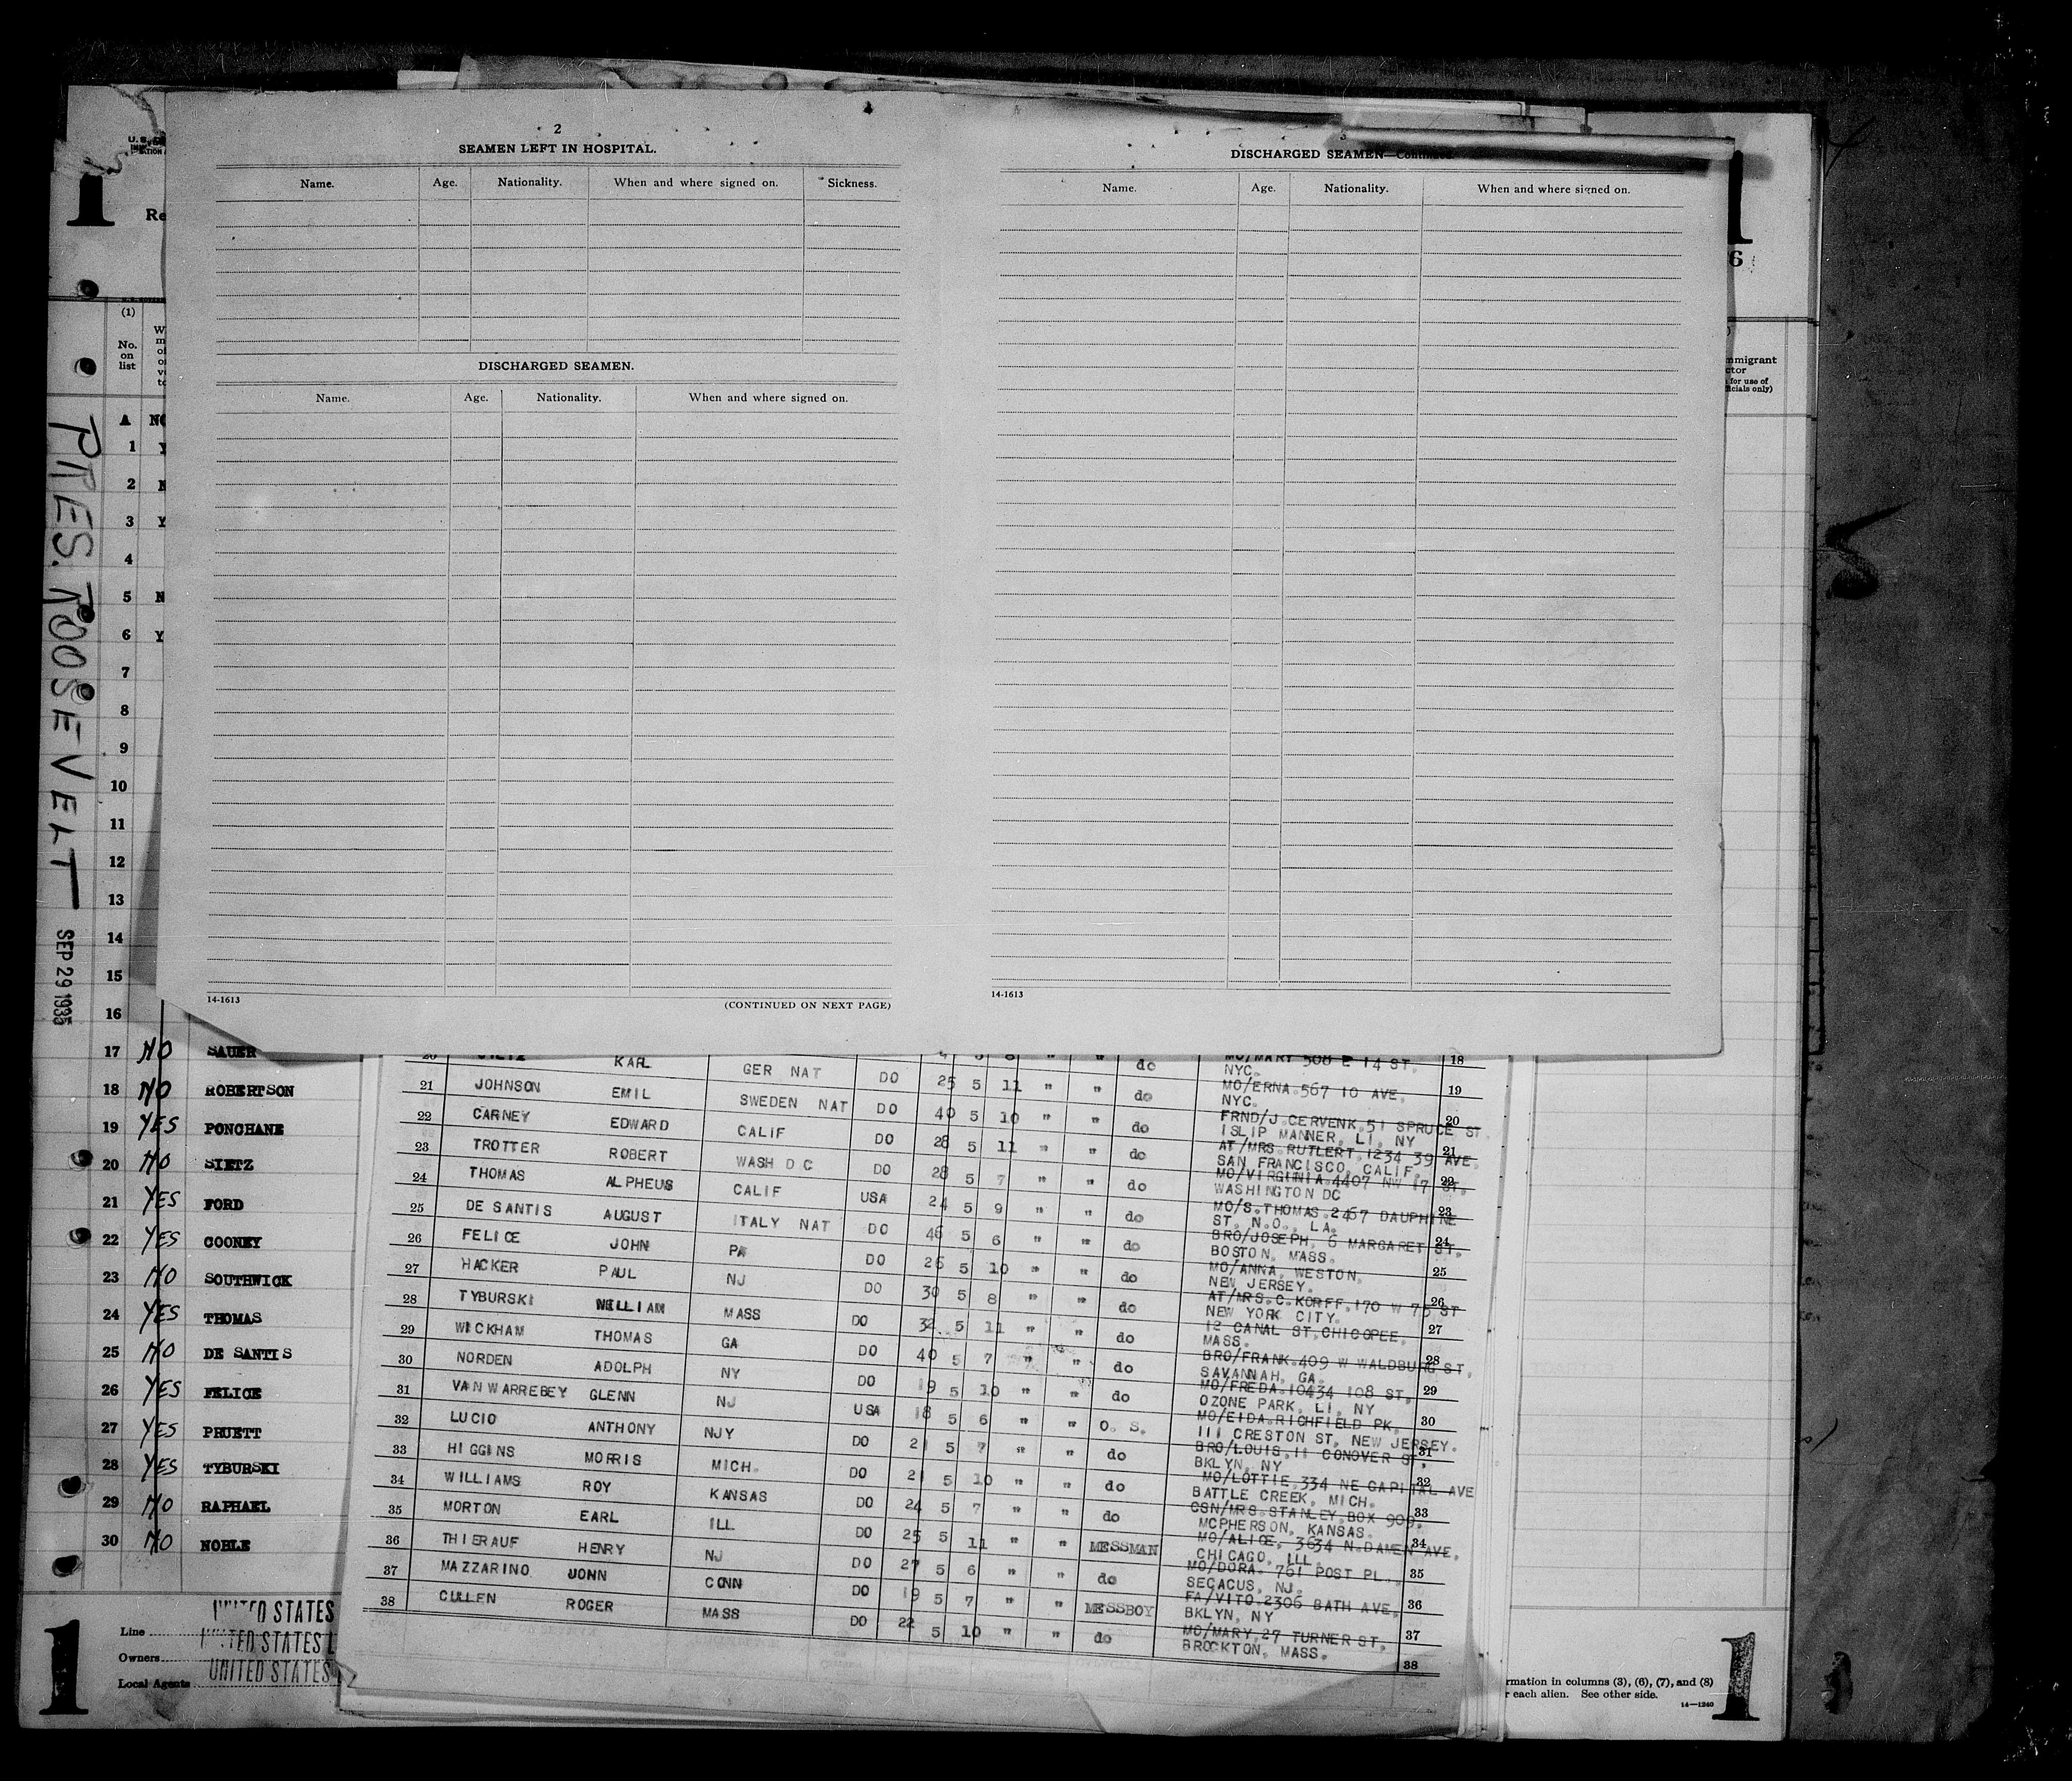 2
SEAMEN LEFT IN HOSPITAL.
Name. Age. Nationality. When and where signed on. Sickness.
DISCHARGED SEAMEN.
Name. Age. Nationality. When and where signed on.
14-1613 (CONTINUED ON NEXT PAGE)
3
DISCHARGED SEAMEN—Continued
Name. Age. Nationality. When and where signed on.
14-1613
1
Re
(1)
No.
on
list
A NO
1 Y
2 N
3 Y
4
5 N
6 Y
7
8
9
10
11
12
13
14
15
16
17 NO SAUER
18 NO ROBERTSON
19 YES PONCHANE
20 NO SIETZ
21 YES FORD
22 YES COONEY
23 NO SOUTHWICK
24 YES THOMAS
25 NO DE SANTIS
26 YES FELICE
27 YES PRUETT
28 YES TYBURSKI
29 NO RAPHAEL
30 NO NOBLE
PRES. ROOSEVELT
SEP 29 1935
1
Line UNITED STATES
Owners UNITED STATES L
Local Agents UNITED STATES
20 KARL GER NAT DO do MO/MARY 508 E 14 ST.
NYC. 18
21 JOHNSON EMIL SWEDEN NAT DO 25 5 11 " " do MO/ERNA.567 10 AVE.
NYC. 19
22 CARNEY EDWARD CALIF DO 40 5 10 " " do FRND/J.CERVENK.51 SPRUCE ST.
ISLIP MANNER, LI, NY 20
23 TROTTER ROBERT WASH D C DO 28 5 11 " " do AT/MRS.RUTLERT.1234 39 AVE.
SAN FRANCISCO, CALIF. 21
24 THOMAS ALPHEUS CALIF USA 28 5 7 " " do MO/VIRGINIA.4407 NW 17 ST.
WASHINGTON DC 22
25 DE SANTIS AUGUST ITALY NAT DO 24 5 9 " " do MO/S.THOMAS.2467 DAUPHINE
ST, N.O., LA. 23
26 FELICE JOHN PA DO 46 5 6 " " do BRO/JOSEPH, 6 MARGARET ST.
BOSTON, MASS. 24
27 HACKER PAUL NJ DO 26 5 10 " " do MO/ANNA, WESTON,
NEW JERSEY. 25
28 TYBURSKI WILLIAM MASS DO 30 5 8 " " do AT/MRS.C.KORFF.170 W 75 ST
NEW YORK CITY. 26
29 WICKHAM THOMAS GA DO 32 5 11 " " do 12 CANAL ST,CHICOPEE,
MASS. 27
30 NORDEN ADOLPH NY DO 40 5 7 " " do BRO/FRANK.409 W WALDBURG ST,
SAVANNAH, GA. 28
31 VAN WARREBEY GLENN NJ USA 19 5 10 " " do MO/FREDA.10434 108 ST,
OZONE PARK, LI, NY 29
32 LUCIO ANTHONY NJY DO 18 5 6 " " O. S. MO/EIDA.RICHFIELD PK,
111 CRESTON ST, NEW JERSEY. 30
33 HIGGINS MORRIS MICH. DO 21 5 7 " " do BRO/LOUIS, 11 CONOVER ST,
BKLYN, NY 31
34 WILLIAMS ROY KANSAS DO 21 5 10 " " do MO/LOTTIE.334 NE CAPITAL AVE
BATTLE CREEK, MICH. 32
35 MORTON EARL ILL DO 24 5 7 " " do CSN/MRS.STANLEY.BOX 909,
MCPHERSON, KANSAS. 33
36 THIERAUF HENRY NJ DO 25 5 11 " " MESSMAN MO/ALICE, 3634 N.DAMEN AVE,
CHICAGO, ILL. 34
37 MAZZARINO JOHN CONN DO 27 5 6 " " do MO/DORA. 761 POST PL.,
SECACUS, NJ. 35
38 CULLEN ROGER MASS DO 19 5 7 " " MESSBOY FA/VITO.2306 BATH AVE,
BKLYN, NY 36
DO 22 5 10 " " do MO/MARY,27 TURNER ST,
BROCKTON, MASS. 37
38
6
mmigrant
ctor
for use of
ficials only)
rmation in columns (3), (6), (7), and (8)
r each alien. See other side.
14—1240
1